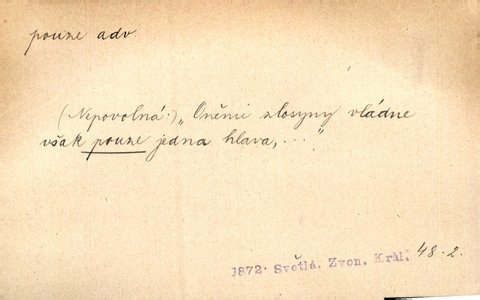 pouze adv.
(Nepovolná:) „Oněmi zlosyny vládne
však pouze jedna hlava, ..."
1872. Světlá. Zvon. Král. 48.2.